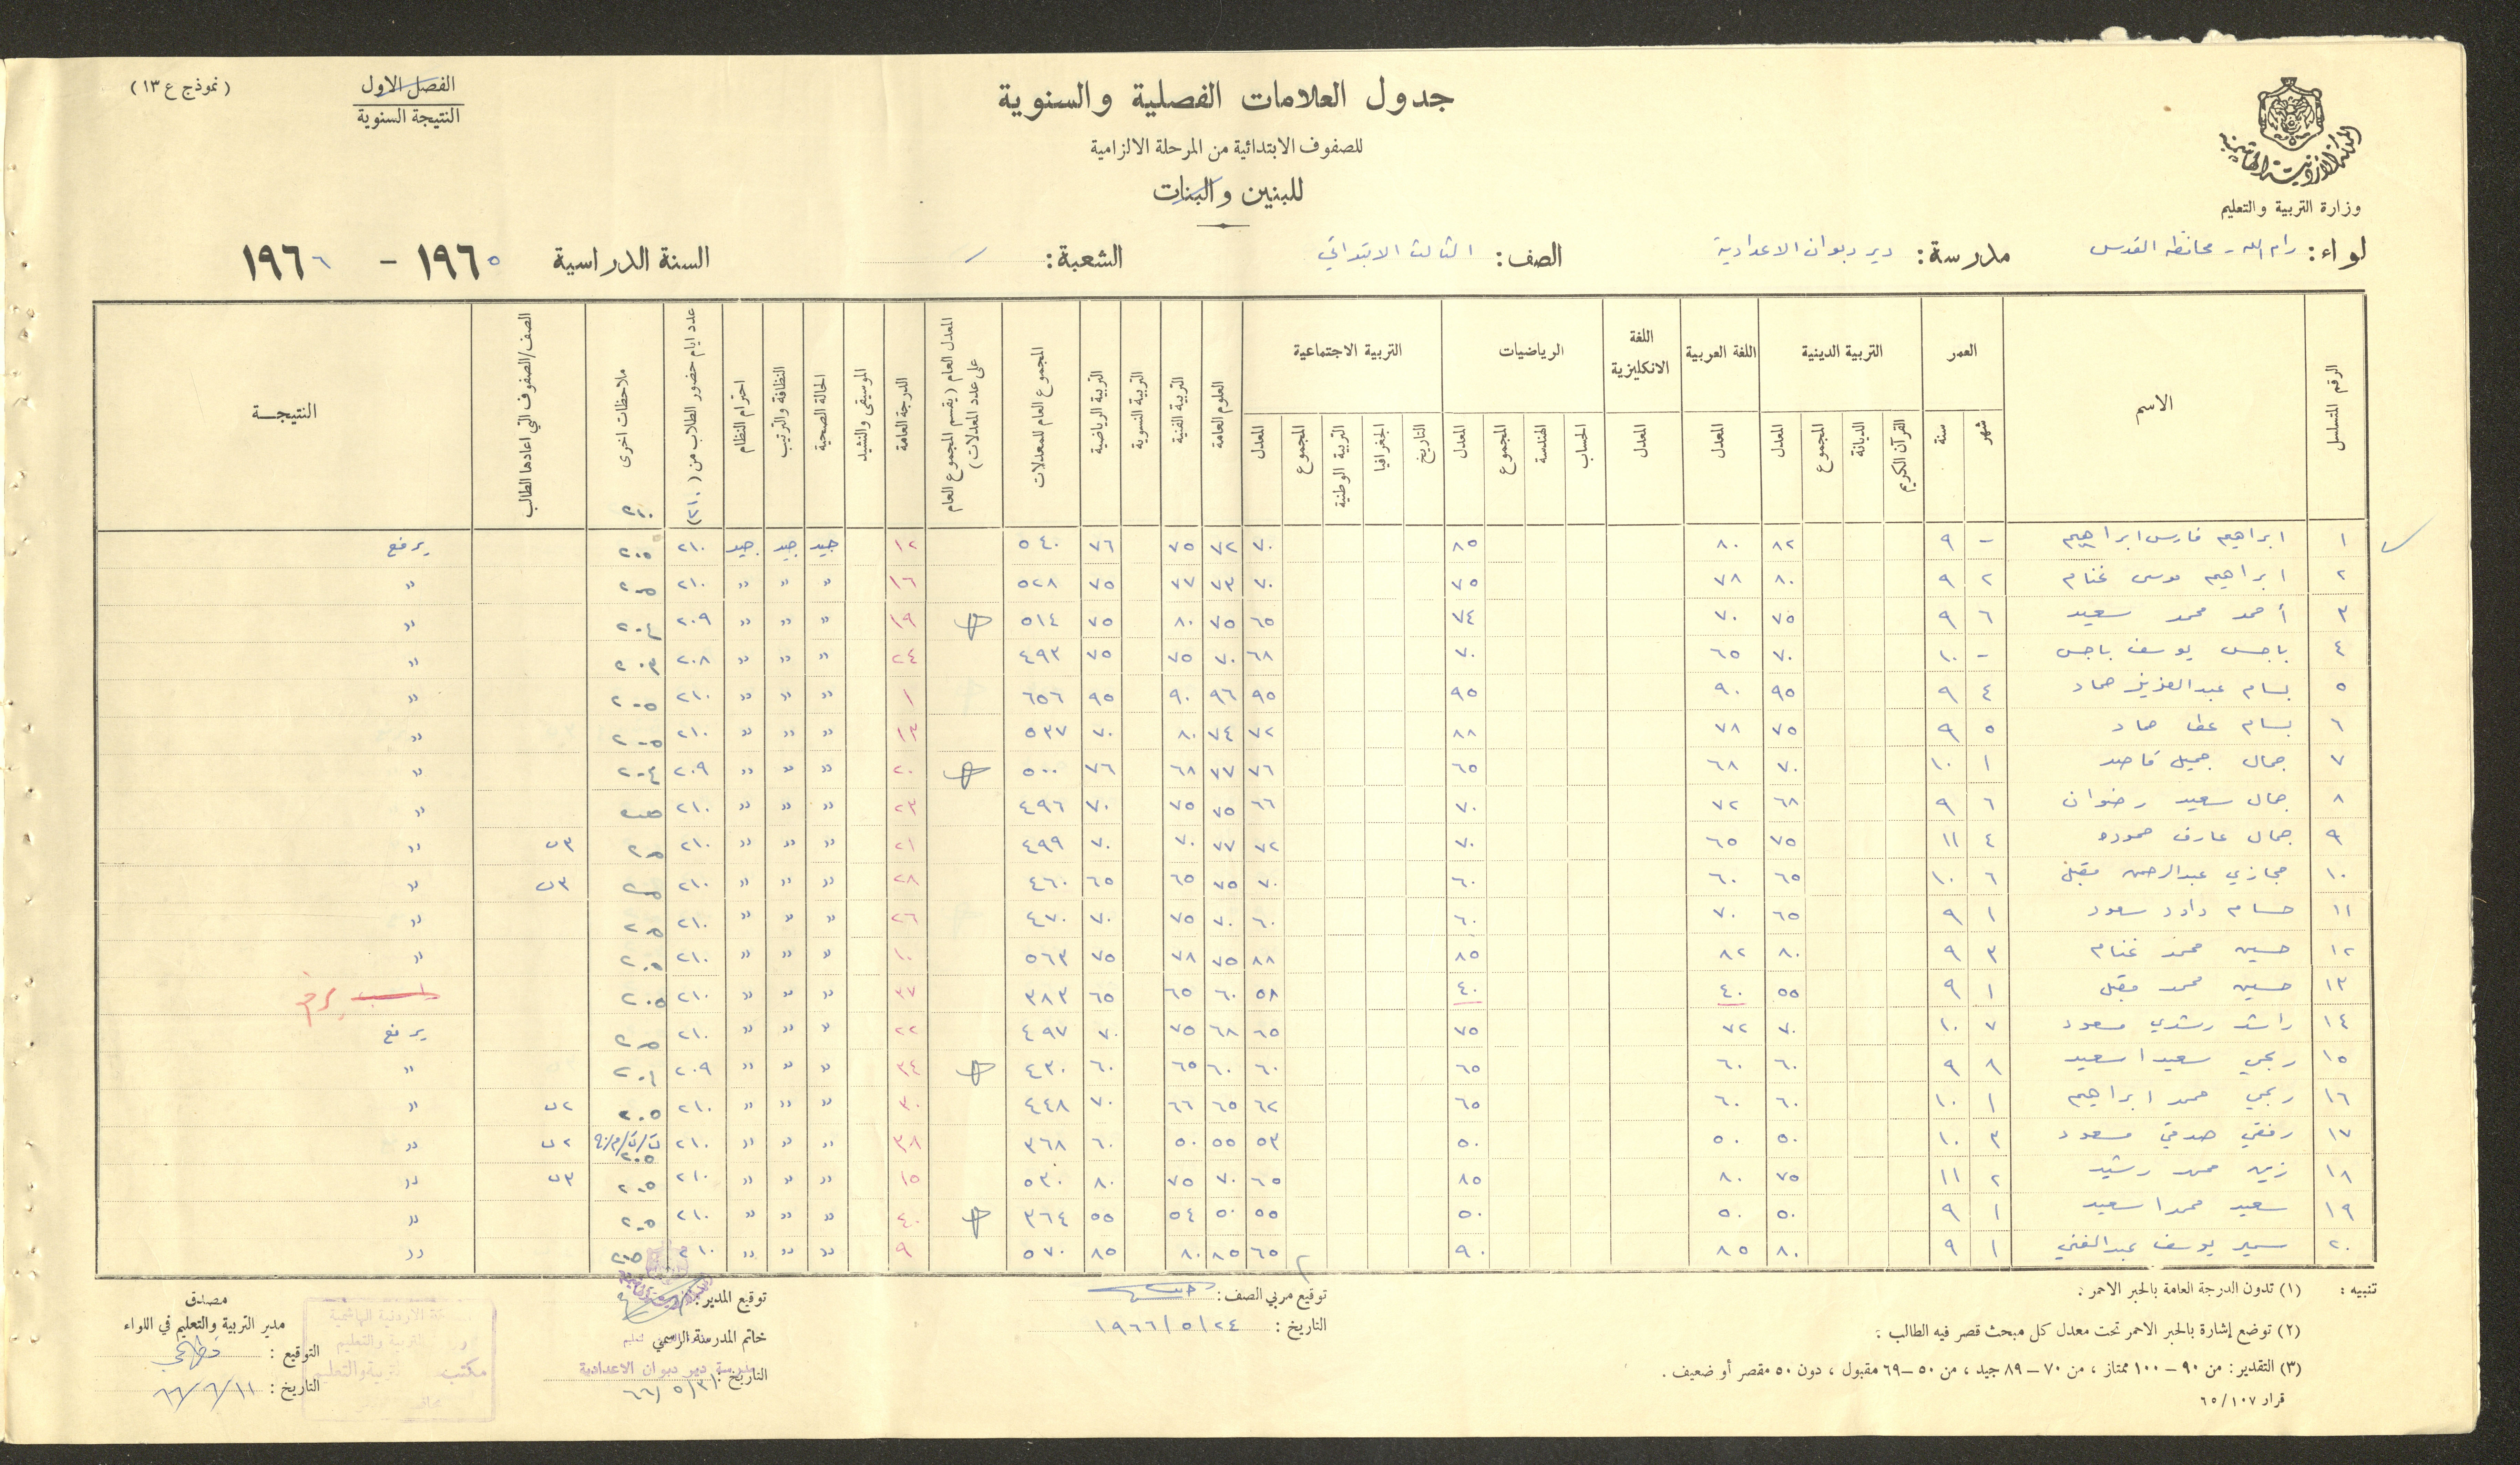 (نموذج ع ١٣)
الفصل الاول
النتيجة السنوية
جدول العلامات الفصلية والسنوية
للصفوف الابتدائية من المرحلة الالزامية
للبنين والبنات
المملكة الاردنية الهاشمية
وزارة التربية والتعليم
لواء: رام الله - محافظة القدس مدرسة: دير دبوان الاعدادية الصف: الثالث الابتدائي الشعبة: / السنة الدراسية ١٩٦٥ - ١٩٦٦
الرقم المتسلسل الاسم العمر التربية الدينية اللغة العربية اللغة الانكليزية الرياضيات التربية الاجتماعية العلوم العامة التربية الفنية التربية النسوية التربية الرياضية المجموع العام للمعدلات المعدل العام (يقسم المجموع العام على عدد المعدلات) الدرجة العامة الموسيقى والنشيد الحالة الصحية النظافة والترتيب احترام النظام عدد ايام حضور الطلاب من (٢١٠) ملاحظات اخرى الصف/الصفوف التي اعادها الطالب النتيجة
شهر سنة القرآن الكريم الديانة المجموع المعدل المعدل المعدل الحساب الهندسة المجموع المعدل التاريخ الجغرافيا التربية الوطنية المجموع المعدل
١ ابراهيم فارس ابراهيم - ٩ ٨٢ ٨٠ ٨٥ ٧٠ ٧٢ ٧٥ ٧٦ ٥٤٠ ١٢ جيد جيد جيد ٢١٠ ٢٠٥ يرفع
٢ ابراهيم موسى غنام ٢ ٩ ٨٠ ٧٨ ٧٥ ٧٠ ٧٣ ٧٧ ٧٥ ٥٢٨ ١٦ " " " ٢١٠ ٢٠٥ "
٣ أحمد محمد سعيد ٦ ٩ ٧٥ ٧٠ ٧٤ ٦٥ ٧٥ ٨٠ ٧٥ ٥١٤ ١٩ " " " ٢٠٩ ٢٠٤ "
٤ باجس يوسف باجس - ١٠ ٧٠ ٦٥ ٧٠ ٦٨ ٧٠ ٧٥ ٧٥ ٤٩٣ ٢٤ " " " ٢٠٨ ٢٠٣ "
٥ بسام عبد العزيز حماد ٤ ٩ ٩٥ ٩٠ ٩٥ ٩٥ ٩٦ ٩٠ ٩٥ ٦٥٦ ١ " " " ٢١٠ ٢٠٥ "
٦ بسام عطا حماد ٥ ٩ ٧٥ ٧٨ ٨٨ ٧٢ ٧٤ ٨٠ ٧٠ ٥٣٧ ١٣ " " " ٢١٠ ٢٠٥ "
٧ جمال جميل قاصد ١ ١٠ ٧٠ ٦٨ ٦٥ ٧٦ ٧٧ ٦٨ ٧٦ ٥٠٠ ٢٠ " " " ٢٠٩ ٢٠٤ "
٨ جمال سعيد رضوان ٦ ٩ ٦٨ ٧٢ ٧٠ ٦٦ ٧٥ ٧٥ ٧٠ ٤٩٦ ٢٣ " " " ٢١٠ ٢٠٥ "
٩ جمال عارف حموده ٤ ١١ ٧٥ ٦٥ ٧٠ ٧٢ ٧٧ ٧٠ ٧٠ ٤٩٩ ٢١ " " " ٢١٠ ٢٠٥ ٣ب "
١٠ حجازي عبد الرحمن مقبل ٦ ١٠ ٦٥ ٦٠ ٦٠ ٧٠ ٧٥ ٦٥ ٦٥ ٤٦٠ ٢٨ " " " ٢١٠ ٢٠٥ ٣ب "
١١ حسام داود سعود ١ ٩ ٦٥ ٧٠ ٦٠ ٦٠ ٧٠ ٧٥ ٧٠ ٤٧٠ ٢٦ " " " ٢١٠ ٢٠٥ "
١٢ حسين محمد غنام ٣ ٩ ٨٠ ٨٢ ٨٥ ٨٨ ٧٥ ٧٨ ٧٥ ٥٦٣ ١٠ " " " ٢١٠ ٢٠٥ "
١٣ حسين محمد مقبل ١ ٩ ٥٥ ٤٠ ٤٠ ٥٨ ٦٠ ٦٥ ٦٥ ٣٨٣ ٣٧ " " " ٢١٠ ٢٠٥
١٤ راشد رشدي مسعود ٧ ١٠ ٧٠ ٧٢ ٧٥ ٦٥ ٦٨ ٧٥ ٧٠ ٤٩٧ ٢٢ " " " ٢١٠ ٢٠٥ يرفع
١٥ ربحي سعيد اسعيد ٨ ٩ ٦٠ ٦٠ ٦٥ ٦٠ ٦٠ ٦٥ ٦٠ ٤٣٠ ٣٤ " " " ٢٠٩ ٢٠٤ "
١٦ ربحي محمد ابراهيم ١ ١٠ ٦٠ ٦٠ ٦٥ ٦٢ ٦٥ ٦٦ ٧٠ ٤٤٨ ٣٠ " " " ٢١٠ ٢٠٥ ٢ب "
١٧ رفقي صدقي مسعود ٣ ١٠ ٥٠ ٥٠ ٥٠ ٥٣ ٥٥ ٥٠ ٦٠ ٣٦٨ ٣٨ " " " ٢١٠ ٢٠٥ ٢ب "
١٨ زين محمد رشيد ٢ ١١ ٧٥ ٨٠ ٨٥ ٦٥ ٧٠ ٧٥ ٨٠ ٥٣٠ ١٥ " " " ٢١٠ ٢٠٥ ٣ب "
١٩ سعيد محمد اسعيد ١ ٩ ٥٠ ٥٠ ٥٠ ٥٥ ٥٠ ٥٤ ٥٥ ٣٦٤ ٤٠ " " " ٢١٠ ٢٠٥ "
٢٠ سمير يوسف عبد الغني ١ ٩ ٨٠ ٨٥ ٩٠ ٦٥ ٨٥ ٨٠ ٨٥ ٥٧٠ ٩ " " " ٢١٠ ٢٠٥ "
تنبيه : (١) تدون الدرجة العامة بالحبر الاحمر :
(٢) توضع إشارة بالحبر الاحمر تحت معدل كل مبحث قصر فيه الطالب :
(٣) التقدير : من ٩٠ - ١٠٠ ممتاز ، من ٧٠ - ٨٩ جيد ، من ٥٠ - ٦٩ مقبول ، دون ٥٠ مقصر أو ضعيف .
قرار ٦٥/١٠٧
توقيع مربي الصف :
التاريخ : ١٩٦٦/٥/٢٤
توقيع المدير :
خاتم المدرسة الرسمي
مدرسة دير دبوان الاعدادية
التاريخ : ٦٦/٥/٣١
مصدق
مدير التربية والتعليم في اللواء
التوقيع :
التاريخ : ٦٦/٦/١١